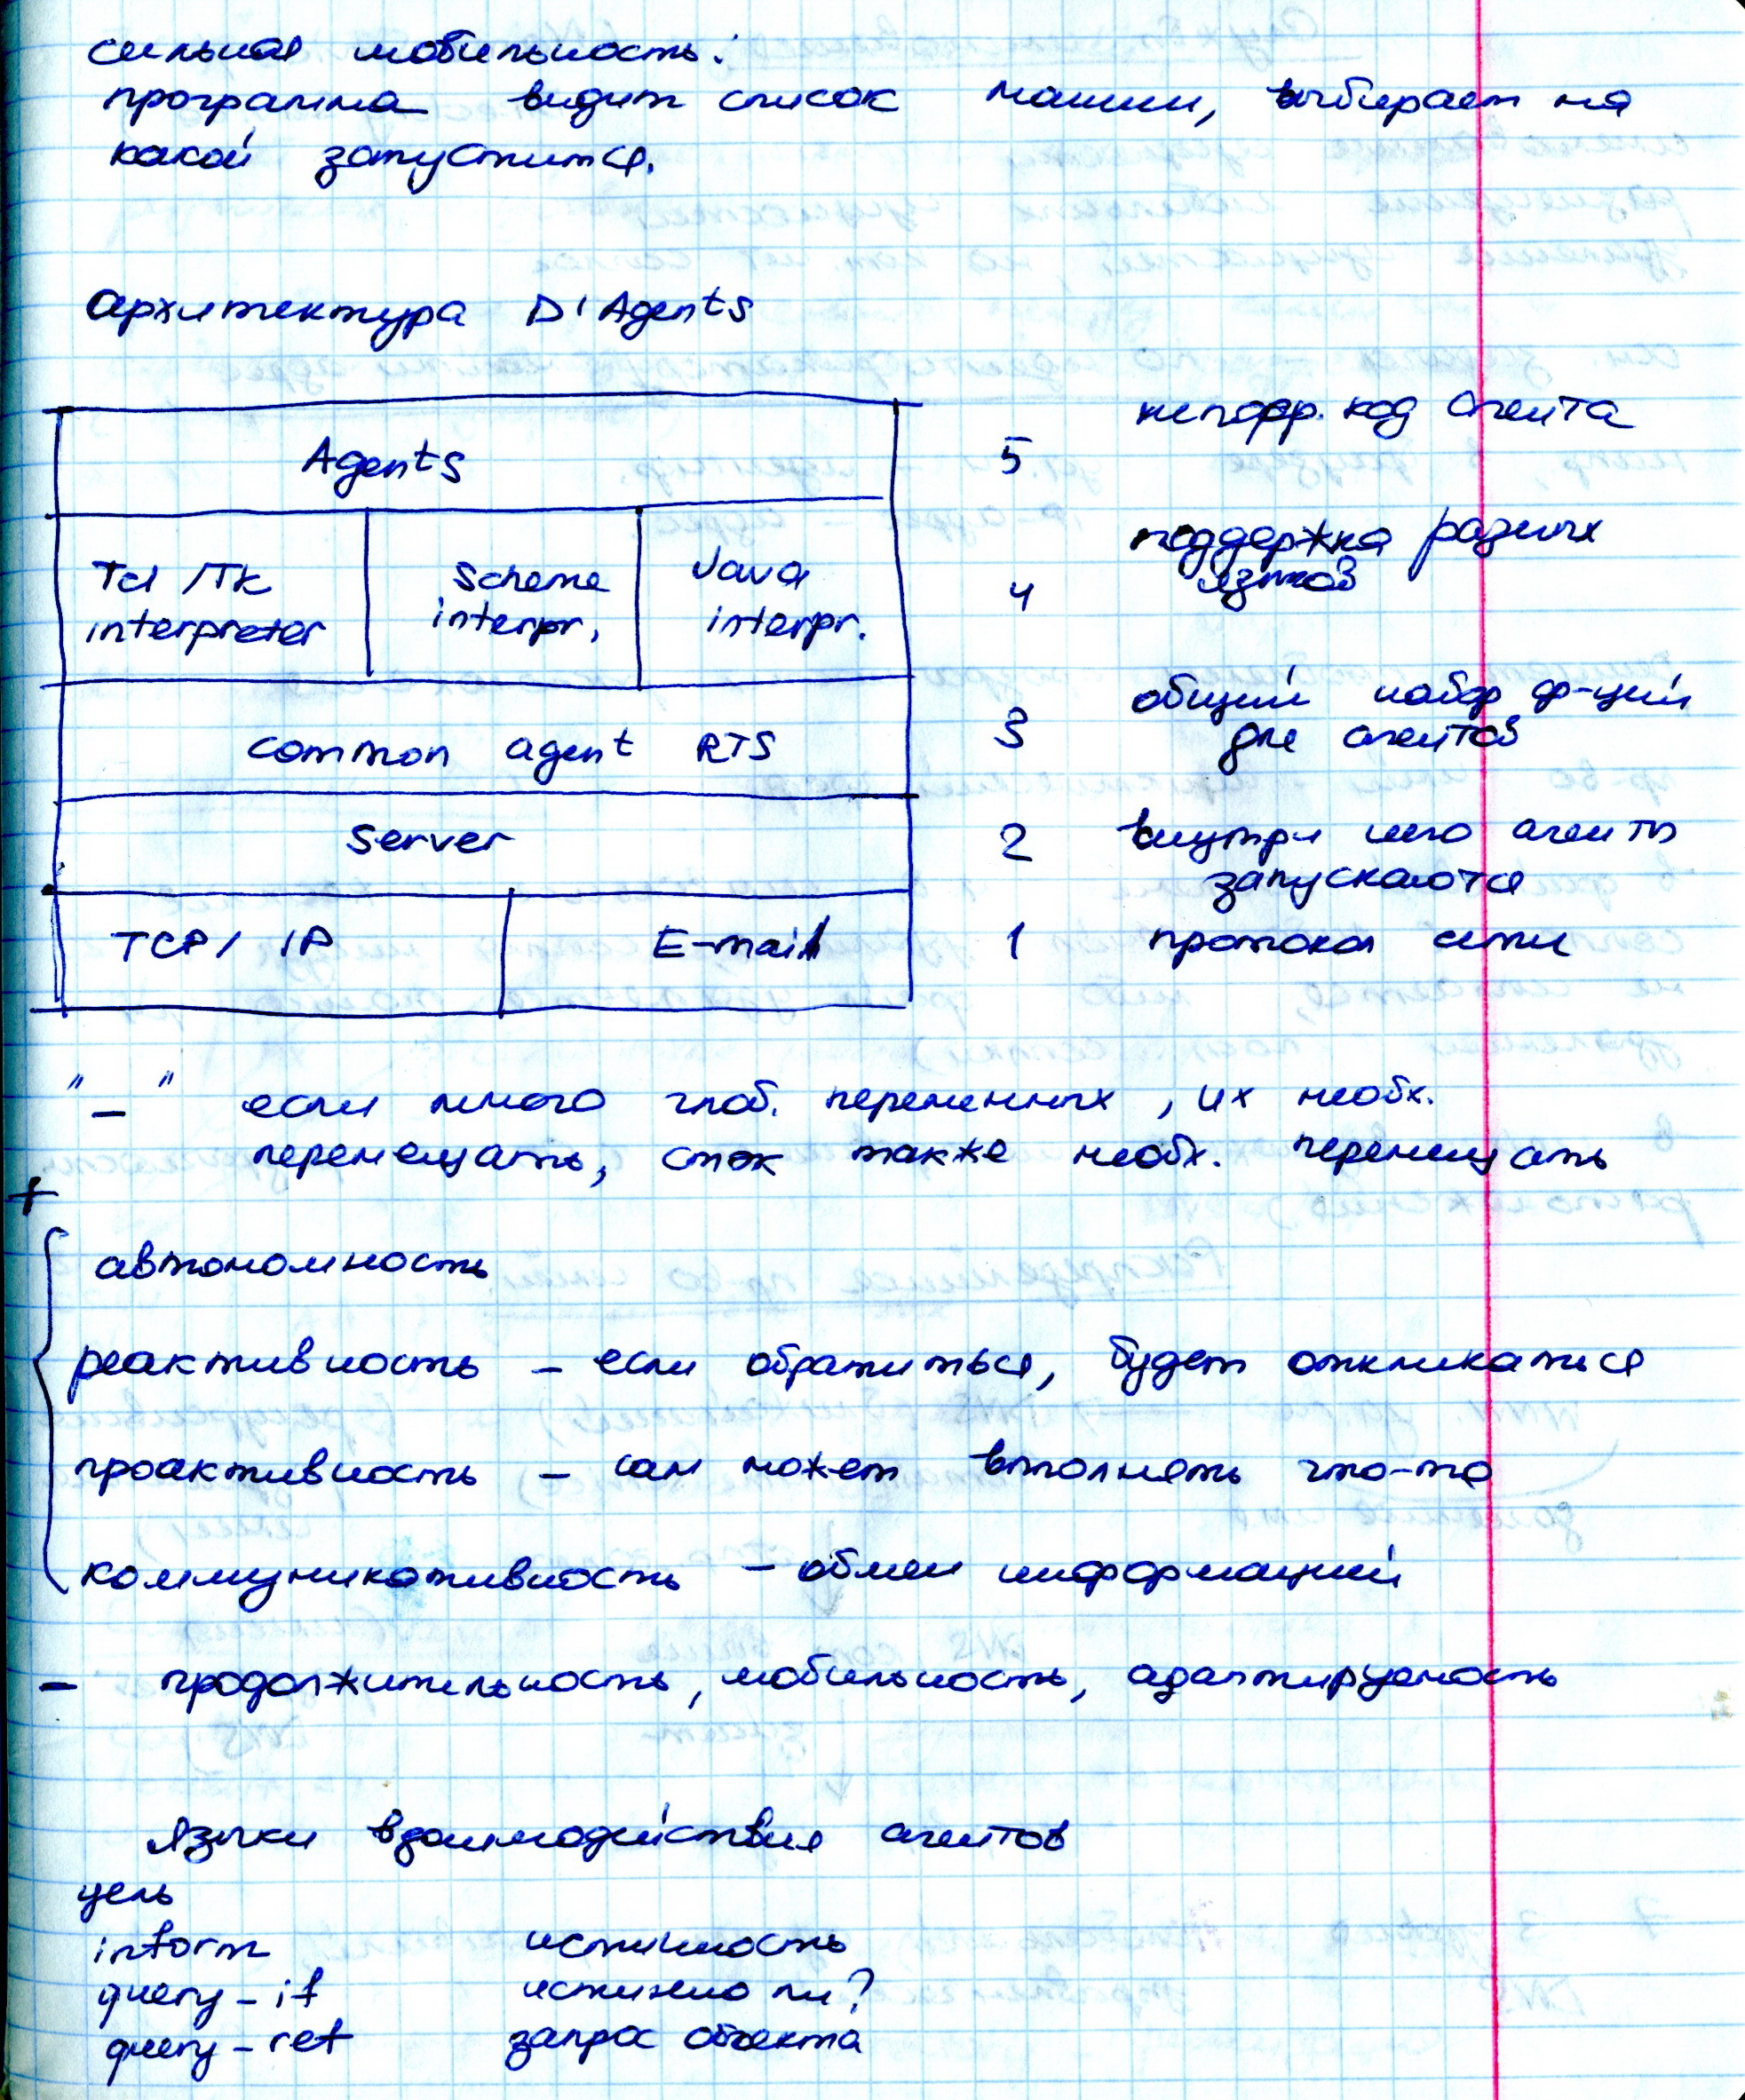 сильная мобильность:
программа видит список машин, выбирает на
какой запустится.
архитектура D'Agents
Agents
5
непоср. код агента
Tcl/Tk
interpreter
Scheme
interpr.
Java
interpr.
4
поддержка разных
языков
common agent RTS
3
общий набор ф-ций
для агентов
Server
2
внутри него агенты
запускаются
TCP/IP
E-mail
1
протокол сети
"–" если много глоб. переменных, их необх.
перемещать, стек также необх. перемещать
+
автономность
реактивность – если обратиться, будет откликаться
проактивность – сам может выполнять что-то
коммуникативность – обмен информацией
– продолжительность, мобильность, адаптируемость
Языки взаимодействия агентов
цель
inform истинность
query-if истинно ли?
query-ref запрос объекта